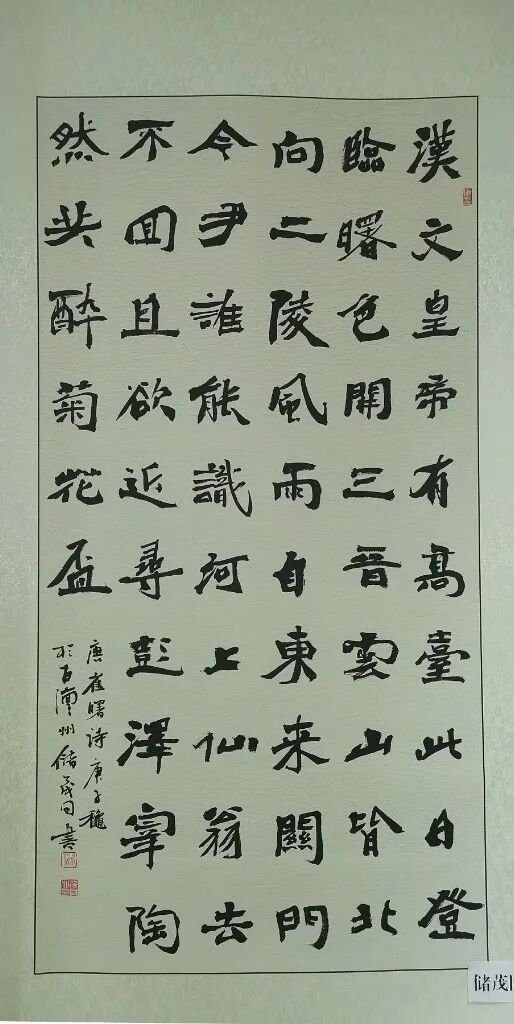 漢文皇帝有高臺此日登
臨曙色開三晉雲山皆北
向二陵風雨自東来關門
令尹誰能識河上仙翁去
不回且欲近尋彭澤宰陶
然共醉菊花盃
唐崔曙诗庚子穐
於古潭州储茂同書
储茂